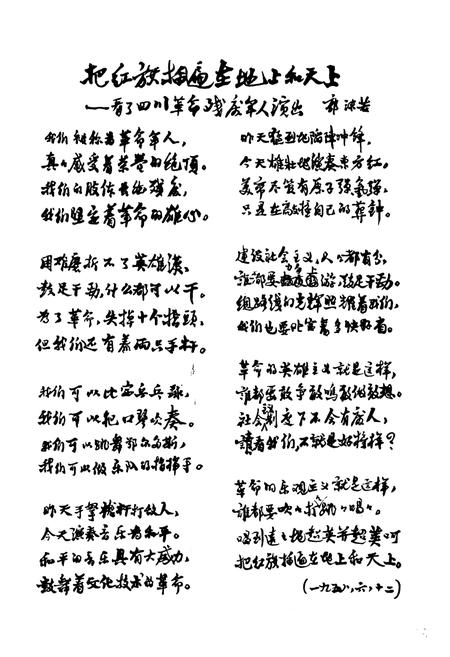 把红旗插遍在地上和天上
——看了四川革命残废军人演出 郭沫若
我们被称为革命军人,
真真感受着荣誉的绝顶。
我们的肢体虽然残废,
我们坚定着革命的雄心。
困难磨折不了英雄汉,
鼓足干劲,什么都可以干。
为了革命,失掉十个指头,
但我们还有着两只手杆。
我们可以比赛乒乓球,
我们可以把口琴吹奏。
我们可以跳舞鄂尔多斯,
我们可以做乐队的指挥手。
昨天手擎枪杆打敌人,
今天演奏音乐为和平。
和平的音乐具有大威力,
鼓舞着文化技术的革命。
昨天在炮火阵冲锋,
今天雄壮地演奏东方红。
美帝尽管有原子弹氢弹,
只是在敲撞自己的葬钟。
建设社会主义,人人都有分,
谁都要力争上游,鼓足干劲。
总路线的光辉照耀着我们,
我们也要比赛着多快好省。
革命的英雄主义就是这样,
谁都要敢争敢鸣敢做敢想。
社会制度下不会有废人,
请看我们,不就是好榜样?
革命的乐观主义就是这样,
谁都要吹
唱到遍地超英并超美呵
把红旗插遍在地上和天上。
(一九五八,六,十二)